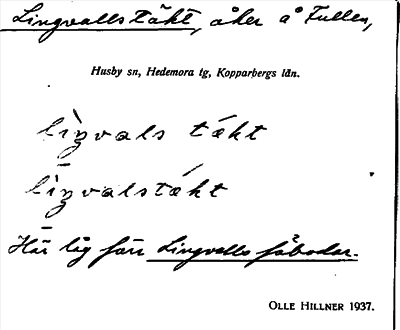 Lingvallstäkt, åker å Fullen,
Husby sn, Hedemora tg, Kopparbergs län.
lìŋvals tækt
lìŋvalstækt
Här låg förr Lingvalls fäbodar.
OLLE HILLNER 1937.